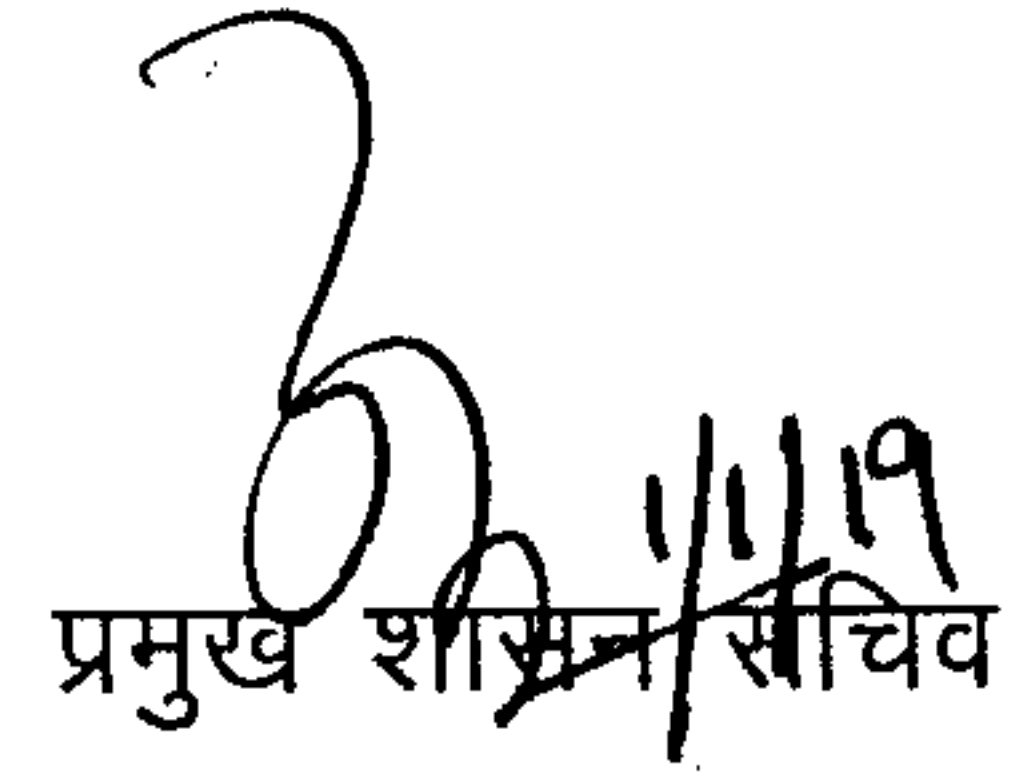 1/1/19
प्रमुख शासन सचिव